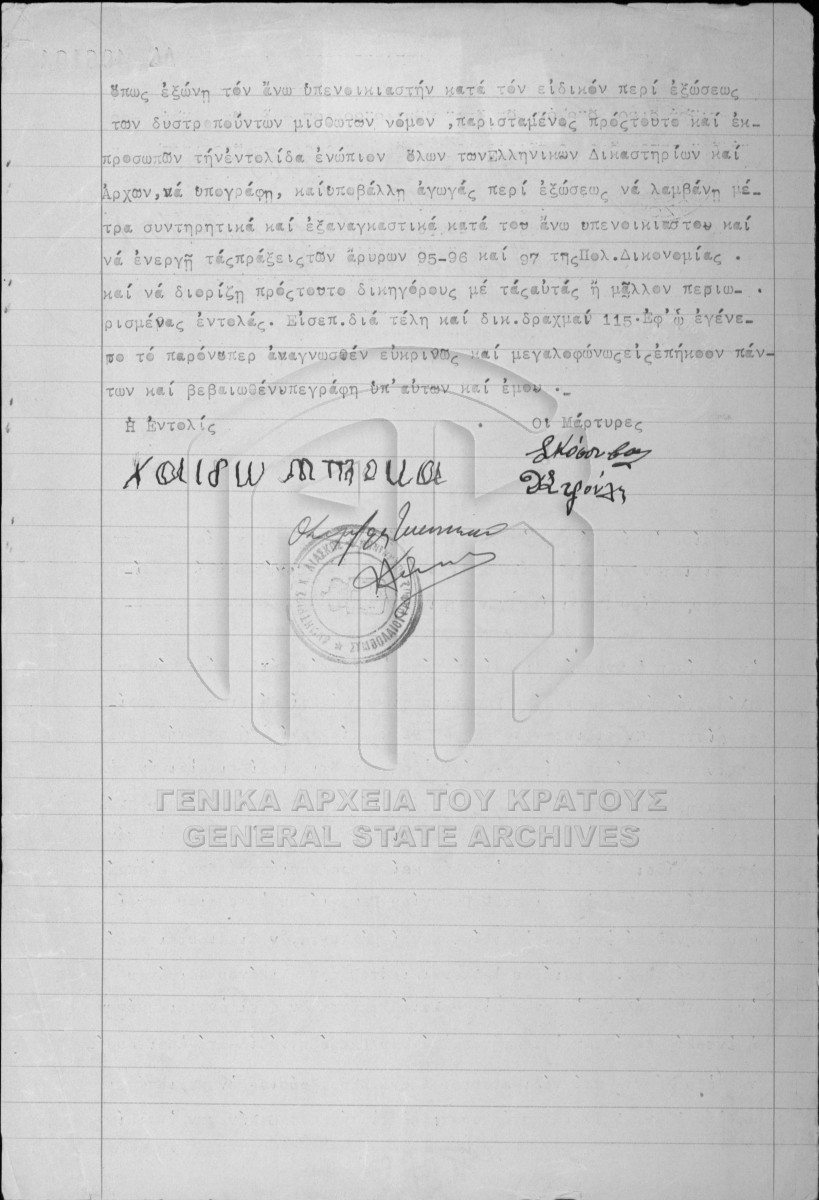 ὅπως ἐξώνῃ τόν ἄνω ὑπενοικιαστήν κατά τόν εἰδικόν περί ἐξώσεως
των δυστροπούντων μισθωτων νόμον ,παριστάμένος πρόςτουτο καί ἐκ-
προσωπων τήνἐντολίδα ἐνώπιον ὅλων τωνἙλληνικων Δικαστηρίων καί
Ἀρχων,νά υπογράφῃ, καίυποβάλλῃ ἀγωγάς περί ἐξώσεως νά λαμβάνῃ μέ-
τρα συντηρητικά καί ἐξαναγκαστικά κατά του ἄνω υπενοικιαστου καί
νά ἐνεργῇ τάςπράξειςτων ἄρυρων 95-96 καί 97 τηςΠολ.Δικονομίας .
καί νά διορίζῃ πρόςτουτο δικηγόρους μέ τάςαὐτάς ἤ μᾶλλον περιω-
ρισμένας ἐντολάς. Εἰσεπ.διά τέλη καί δικ.δραχμαί 115.Ἐφ'ᾧ ἐγένε-
το τό παρόνυπερ ἀναγνωσθέν εὐκρινως καί μεγαλοφώνωςεἰςἐπήκοον πάν-
των καί βεβαιωθένυπεγράφη ὑπ'αὐτων καί ἐμου .-
Ἡ Ἐντολίς Οι Μάρτυρες
ΧΑΙΔΩ ΜΠΛΟΚΑ
ΣΥΜΒΟΛΑΙΟΓΡΑΦΟΣ
ΓΕΝΙΚΑ ΑΡΧΕΙΑ ΤΟΥ ΚΡΑΤΟΥΣ
GENERAL STATE ARCHIVES